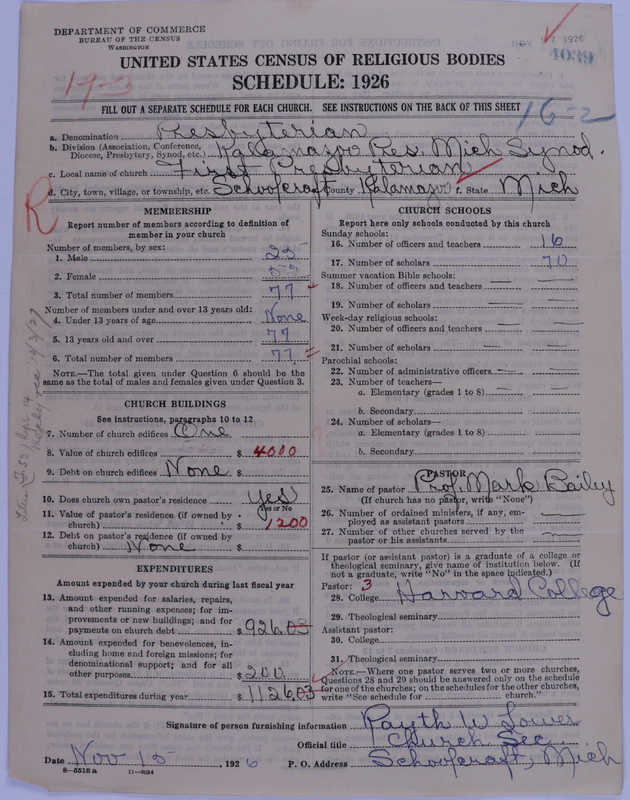 DEPARTMENT OF COMMERCE
BUREAU OF THE CENSUS
WASHINGTON
NOV 1926
4039
UNITED STATES CENSUS OF RELIGIOUS BODIES
SCHEDULE: 1926
19-3
FILL OUT A SEPARATE SCHEDULE FOR EACH CHURCH. SEE INSTRUCTIONS ON THE BACK OF THIS SHEET
16-2
a. Denomination Presbyterian
b. Division (Association, Conference, Diocese, Presbytery, Synod, etc.) Kalamazoo Pres. Mich Synod.
c. Local name of church First Presbyterian
d. City, town, village, or township, etc. Schoolcraft County Kalamazoo f. State Mich
R
MEMBERSHIP
Report number of members according to definition of
member in your church
Number of members, by sex:
1. Male 25
2. Female 52
3. Total number of members 77
Number of members under and over 13 years old:
4. Under 13 years of age None
5. 13 years old and over 77
6. Total number of members 77
NOTE.—The total given under Question 6 should be the
same as the total of males and females given under Question 3.
CHURCH BUILDINGS
See instructions, paragraphs 10 to 12
7. Number of church edifices One
8. Value of church edifices $ 4000
9. Debt on church edifices None $
10. Does church own pastor's residence Yes
Yes or No
11. Value of pastor's residence (if owned by
church) $ 1200
12. Debt on pastor's residence (if owned by
church) None $
EXPENDITURES
Amount expended by your church during last fiscal year
13. Amount expended for salaries, repairs,
and other running expenses; for im-
provements or new buildings; and for
payments on church debt $ 926.03
14. Amount expended for benevolences, in-
cluding home and foreign missions; for
denominational support; and for all
other purposes $ 200
15. Total expenditures during year $ 1126.03
CHURCH SCHOOLS
Report here only schools conducted by this church
Sunday schools:
16. Number of officers and teachers 16
17. Number of scholars 70
Summer vacation Bible schools:
18. Number of officers and teachers
19. Number of scholars
Week-day religious schools:
20. Number of officers and teachers
21. Number of scholars
Parochial schools:
22. Number of administrative officers
23. Number of teachers—
a. Elementary (grades 1 to 8)
b. Secondary
24. Number of scholars—
a. Elementary (grades 1 to 8)
b. Secondary
PASTOR
25. Name of pastor Prof. Mark Bailey
(If church has no pastor, write "None")
26. Number of ordained ministers, if any, em-
ployed as assistant pastors
27. Number of other churches served by the
pastor or his assistants
If pastor (or assistant pastor) is a graduate of a college or
theological seminary, give name of institution below. (If
not a graduate, write "No" in the space indicated.)
Pastor: 3
28. College Harvard College
29. Theological seminary
Assistant pastor:
30. College
31. Theological seminary
NOTE.—Where one pastor serves two or more churches,
Questions 28 and 29 should be answered only on the schedule
for one of the churches; on the schedules for the other churches,
write "See schedule for church."
Signature of person furnishing information W. Tower
Official title Church Sec
Date Nov 15, 1926 P. O. Address Schoolcraft, Mich
8-5518 a 11-9054